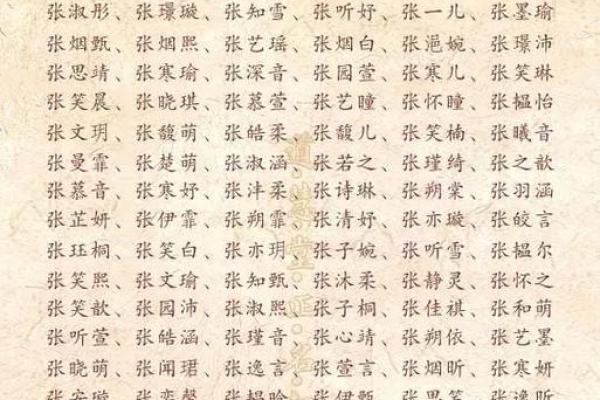 张淑彤、张璟璇、张知雪、张听妤、张一儿、张墨瑜
张烟甄、张烟熙、张艺瑶、张烟白、张滟婉、张璟沛
张思靖、张寒瑜、张深音、张园萱、张寒儿、张笑琳
张笑晨、张晓琪、张慕萱、张艺瞳、张怀瞳、张韫怡
张文玥、张馥萌、张皓柔、张馥儿、张笑楠、张曦音
张曼霏、张楚萌、张淑涵、张若之、张瑾绮、张之歆
张慕音、张寒妤、张沣柔、张诗琳、张朔棠、张羽涵
张芷妍、张伊霏、张朔霏、张清妤、张亦璇、张皎言
张珏桐、张笑白、张亦玥、张子婉、张听雪、张韫尔
张笑熙、张文瑜、张知甄、张沐柔、张静灵、张怀之
张笑歆、张园沛、张淑熙、张子桐、张佳祺、张和萌
张听萱、张皓涵、张瑾音、张心靖、张朔依、张艺墨
张晓萌、张闻珺、张逸言、张萱言、张烟昕、张寒妍
张安璇、张奕馨、张韫晗、张伊甄、张思笑、张逸昕